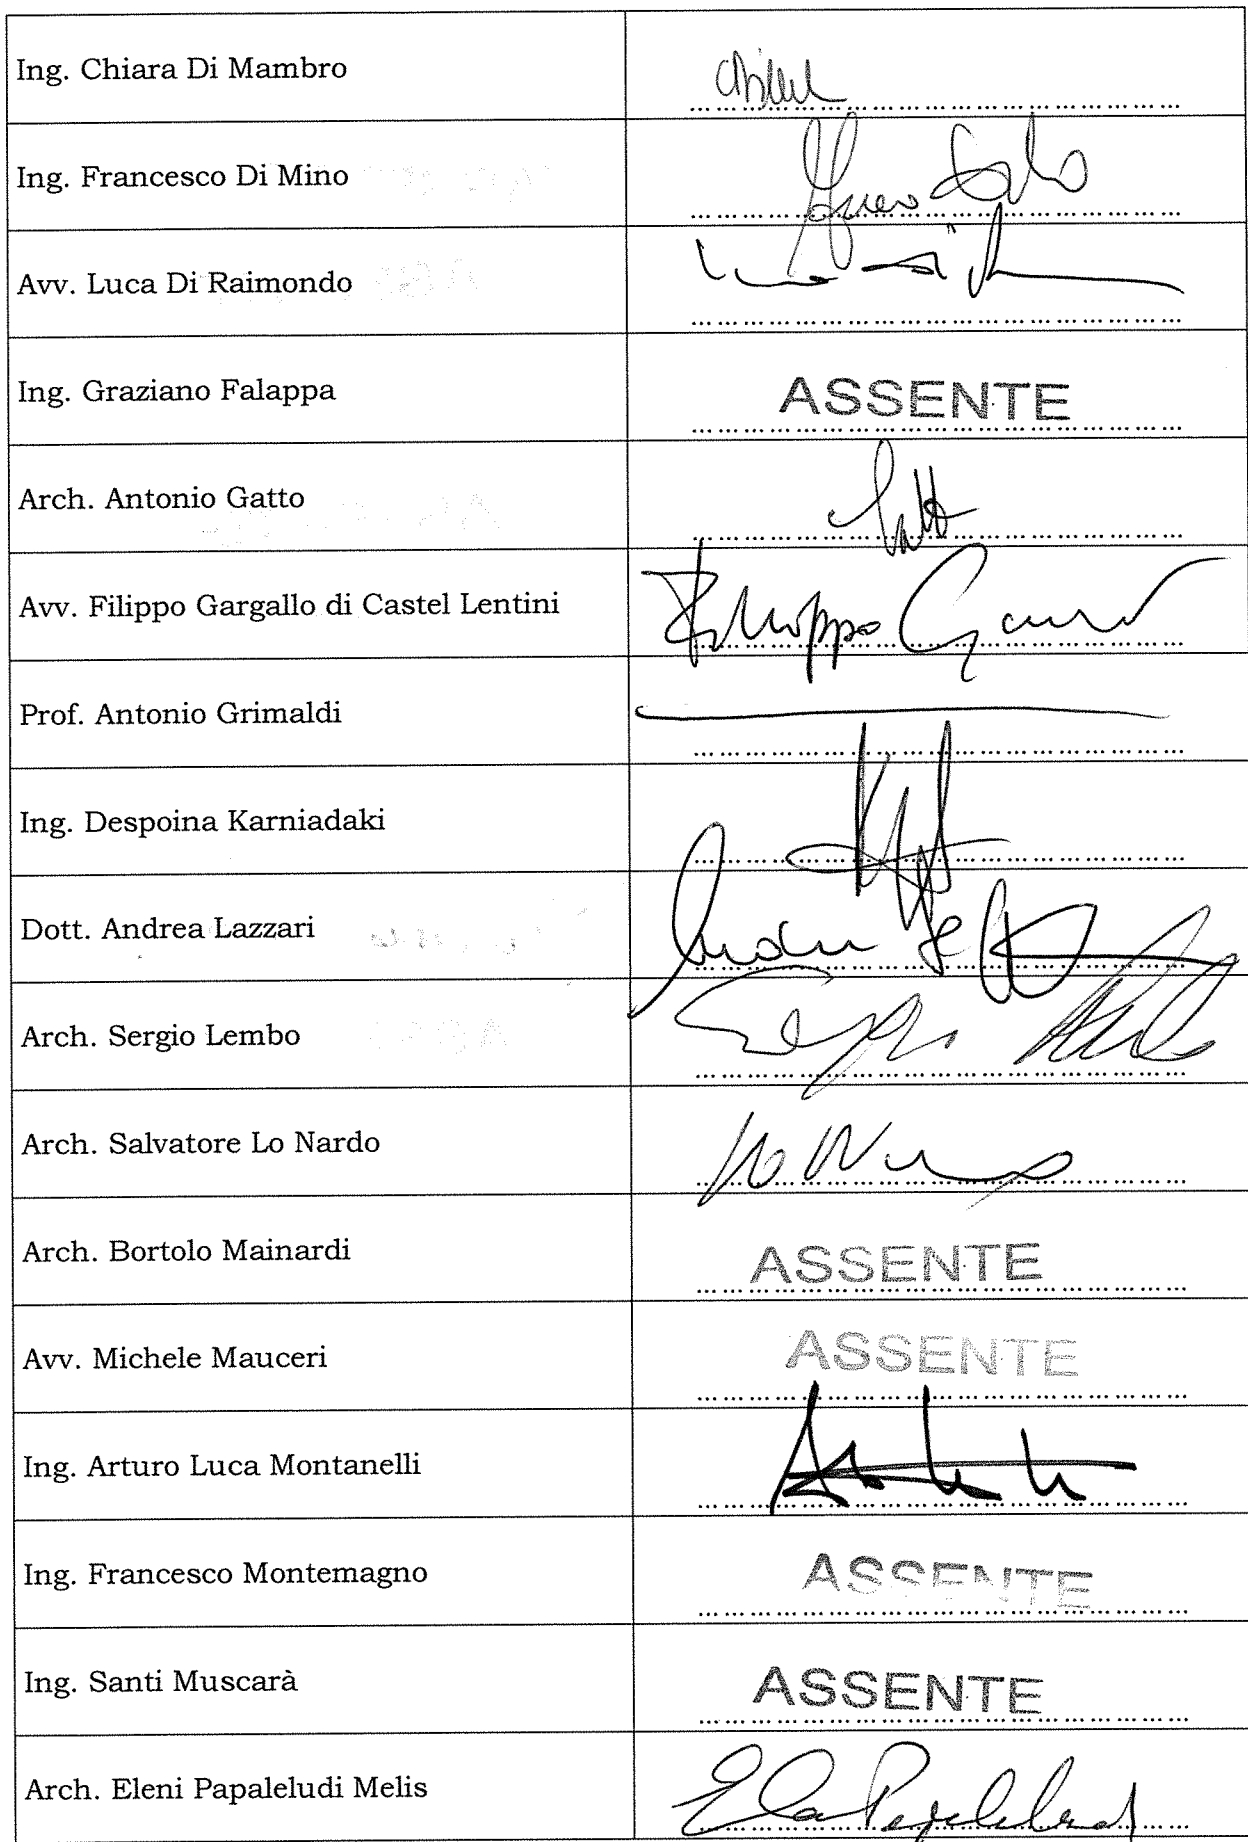 Ing. Chiara Di Mambro
Ing. Francesco Di Mino
Avv. Luca Di Raimondo
Ing. Graziano Falappa ASSENTE
Arch. Antonio Gatto
Avv. Filippo Gargallo di Castel Lentini Filippo
Prof. Antonio Grimaldi
Ing. Despoina Karniadaki
Dott. Andrea Lazzari
Arch. Sergio Lembo
Arch. Salvatore Lo Nardo
Arch. Bortolo Mainardi ASSENTE
Avv. Michele Mauceri ASSENTE
Ing. Arturo Luca Montanelli
Ing. Francesco Montemagno ASSENTE
Ing. Santi Muscarà ASSENTE
Arch. Eleni Papaleludi Melis